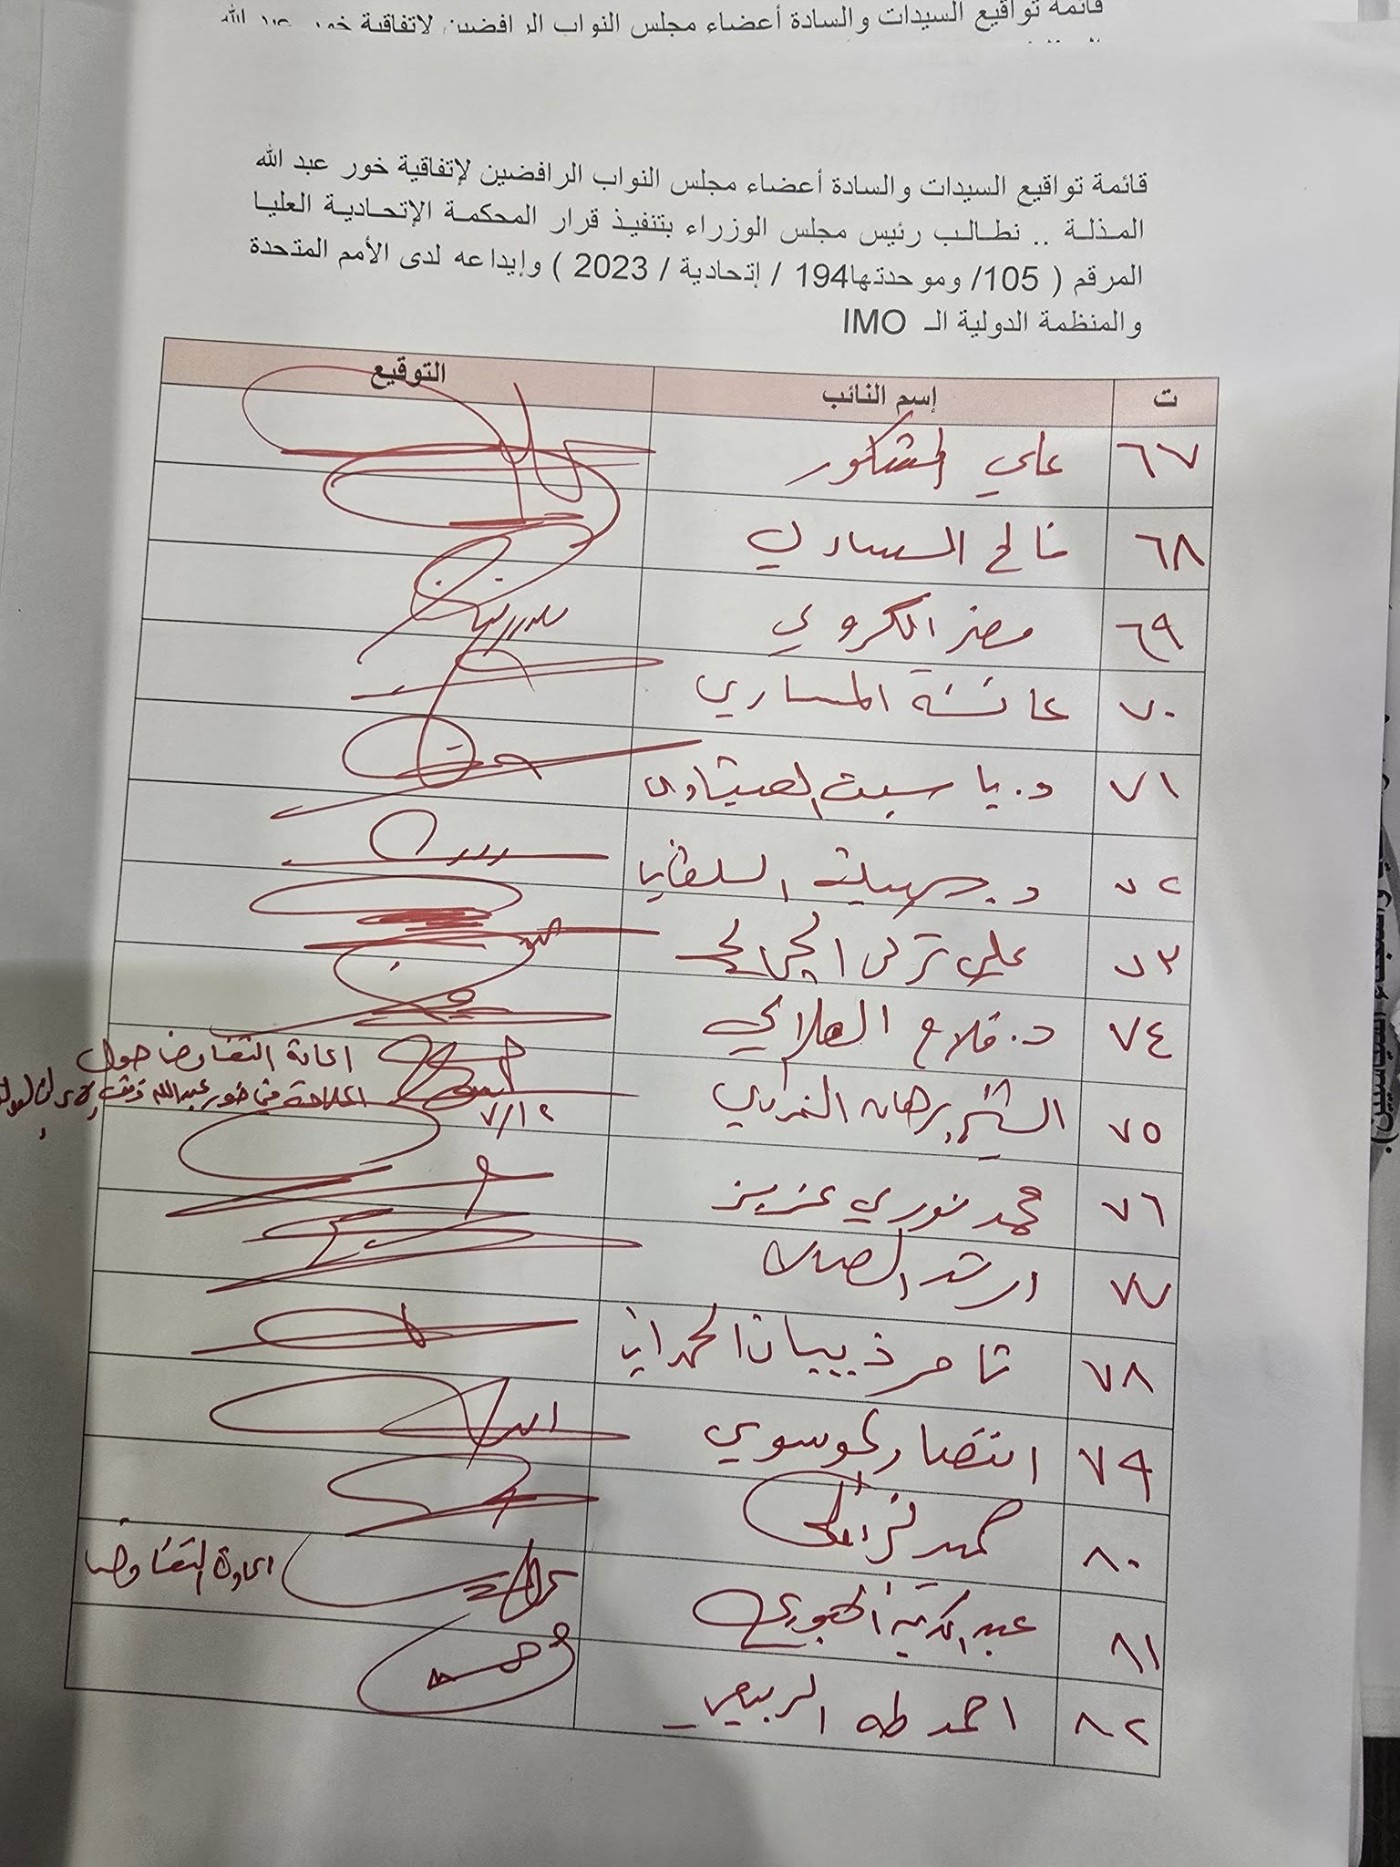 قائمة تواقيع السيدات والسادة أعضاء مجلس النواب الرافضين لاتفاقية خور عبد الله
قائمة تواقيع السيدات والسادة أعضاء مجلس النواب الرافضين لإتفاقية خور عبد الله
المذلة .. نطالب رئيس مجلس الوزراء بتنفيذ قرار المحكمة الإتحادية العليا
المرقم ( 105/ وموحدتها194 / إتحادية / 2023 ) وإيداعه لدى الأمم المتحدة
والمنظمة الدولية الـ IMO
ت إسم النائب التوقيع
٦٧ علي المشكور
٦٨ فالح الساري
٦٩ مضر الكروي
٧٠ عائشة المساري
٧١ د. ياسين العيثاوي
٧٢ د.
٧٣ علي تركي الجمالي
٧٤ د. فلاح الهلالي
٧٥ الشيخ برهان النمراوي
اعادة التفاوض حول
الملاحة في خور عبدالله
٧/١٢
٧٦ محمد نوري عزيز
٧٧ ارشد الصالحي
٧٨ ثامر ذيبان الحمداني
٧٩ انتصار الموسوي
٨٠ حميد
٨١ الجبوري
اعادة التفاوض
٨٢ احمد طه الربيعي